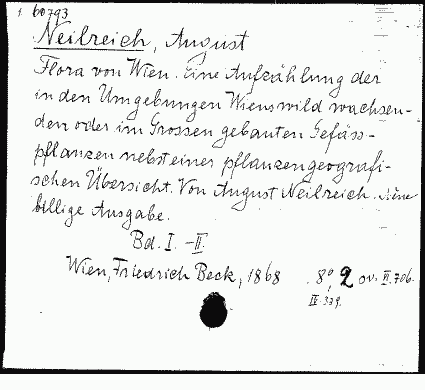 60793
Neilreich, August
Flora von Wien. Eine Aufzählung der
in den Umgebungen Wiens wild wachsen-
den oder im Grossen gebauten Gefäss-
pflanzen nebst einer pflanzengeografi-
schen Übersicht. Von August Neilreich. Neue
billige Ausgabe.
Bd. I. - II.
Wien, Friedrich Beck, 1868 8°, 2 ov. II. 706.
IV. 339.